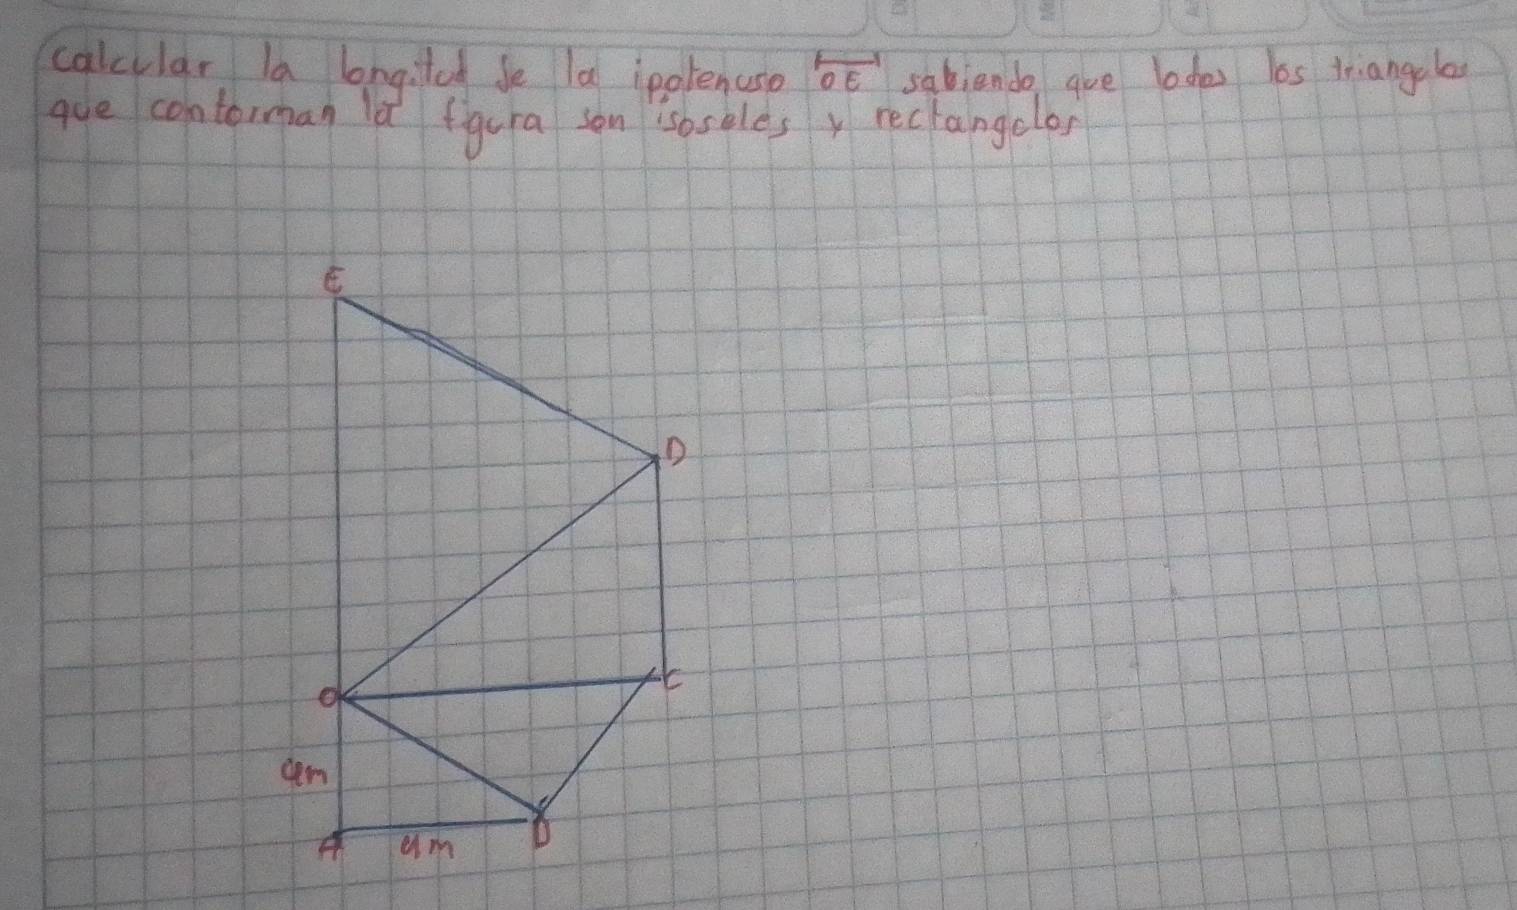 calcular la longitud de la ipotenusa OE sabiendo que todos los triangulos
que conforman la figura son isoseles y rectangulos
E
D
O
C
4m
A
4m
B